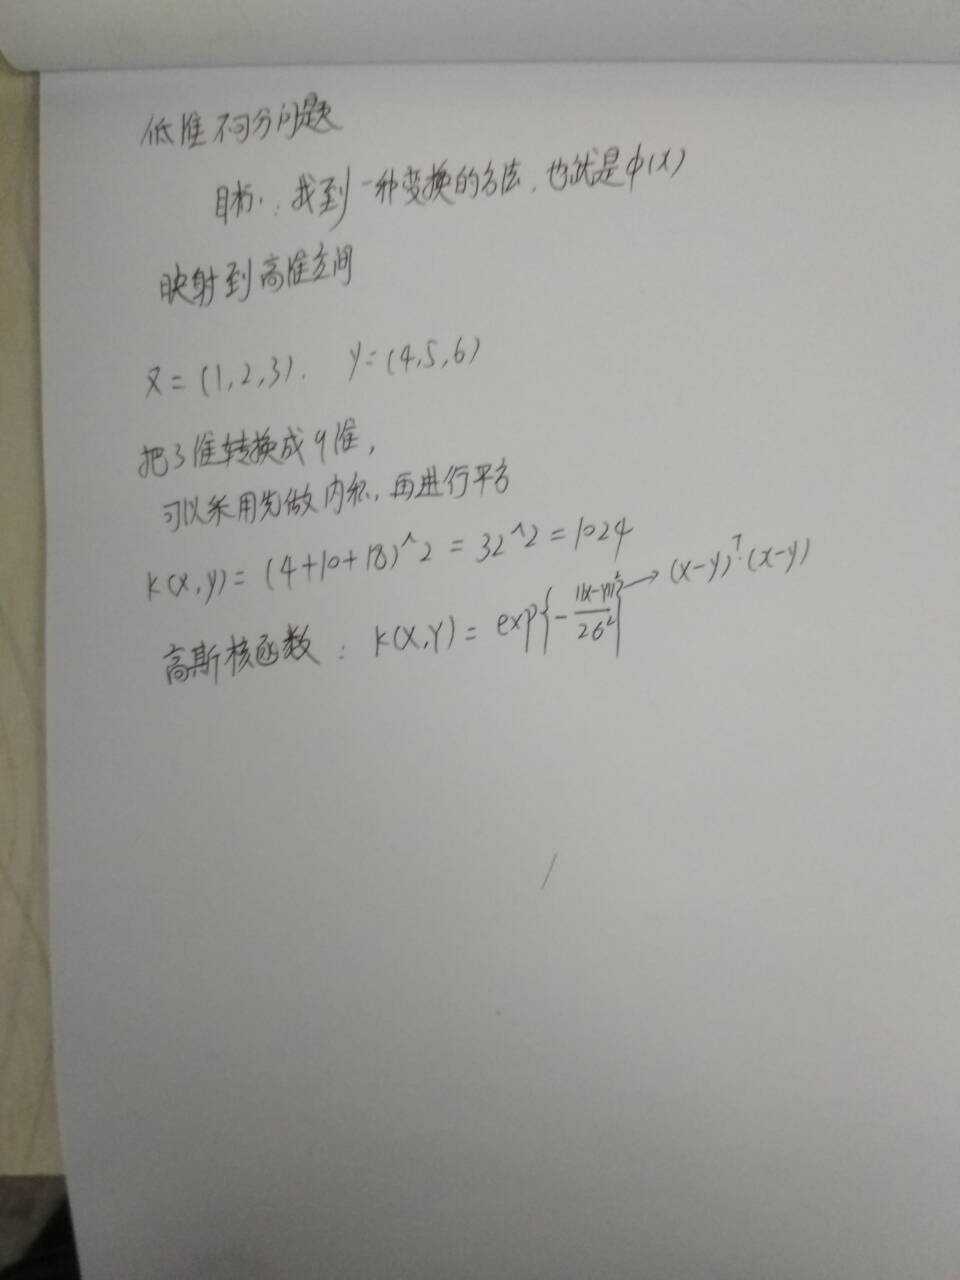 低准不可分问题
目标:找到一种变换的方法,也就是φ(x)
映射到高准空间
x = (1,2,3). y = (4,5,6)
把3准转换成9准,
可以采用先做内积,再进行平方
K(x,y) = (4+10+18)^2 = 32^2 = 1024
高斯核函数: K(X,Y) = exp{-||x-y||²/2σ²} → (x-y)ᵀ·(x-y)